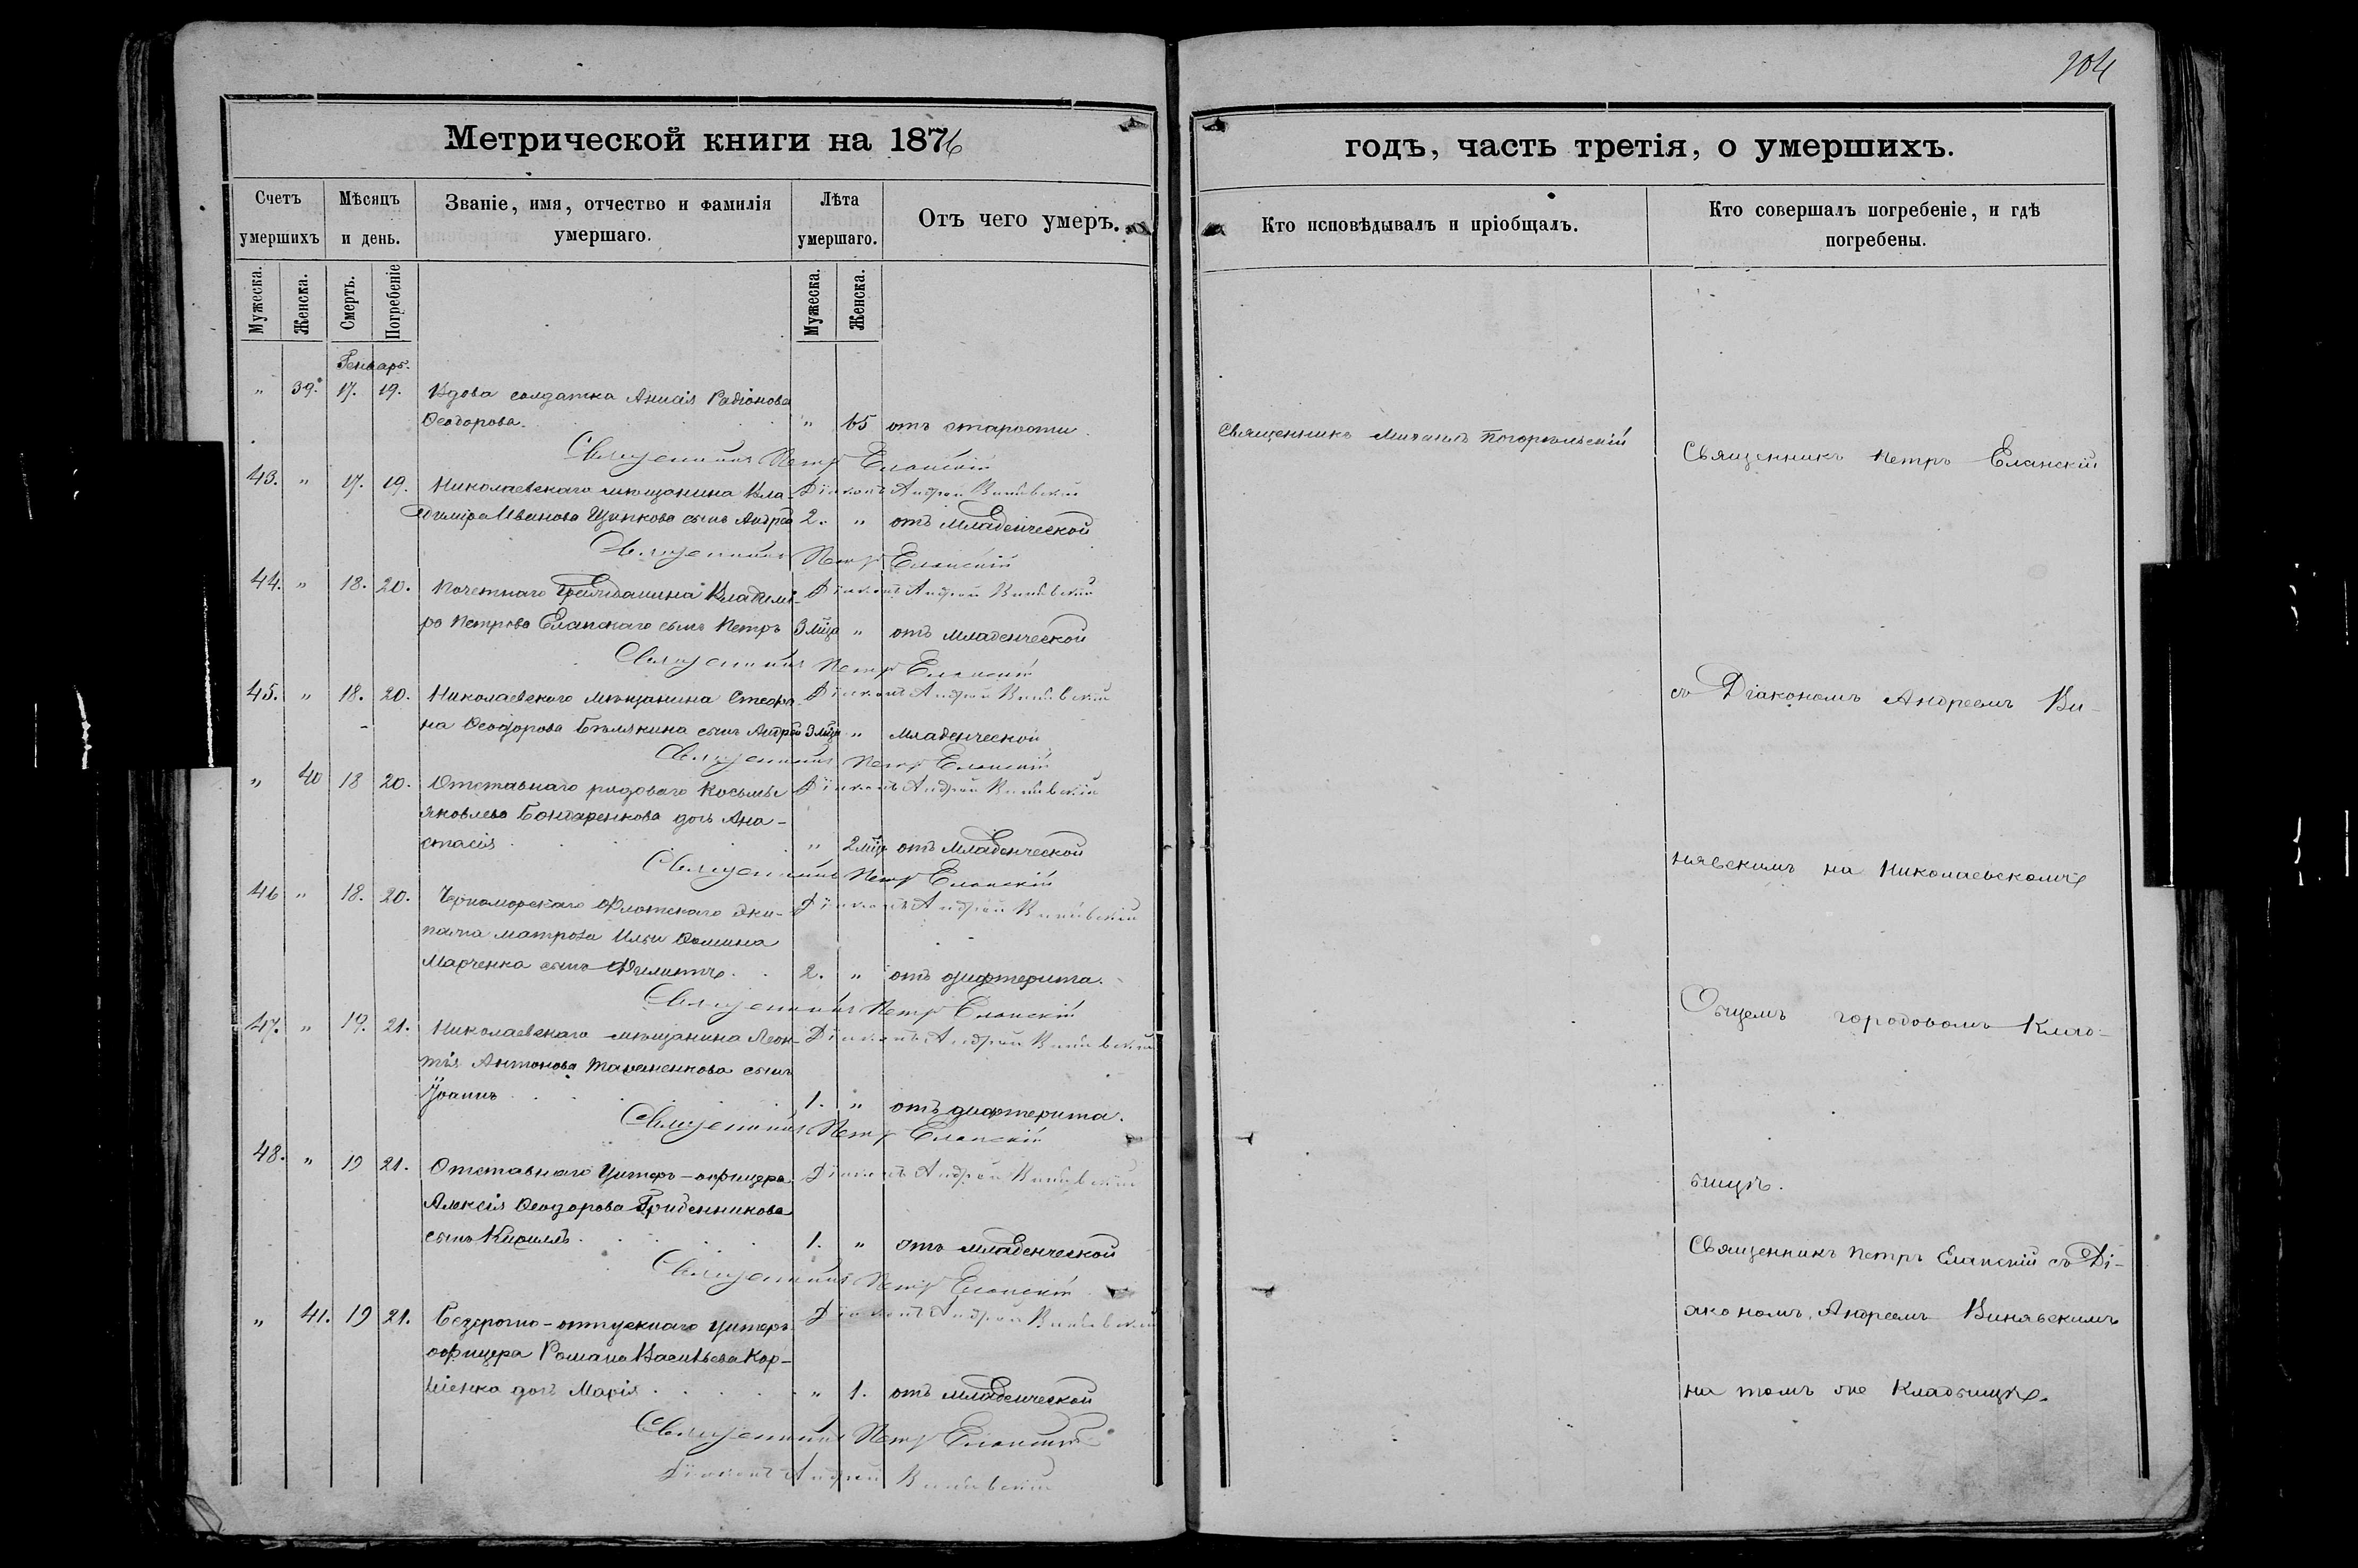 304
Метрической книги на 1876
годъ, часть третія, о умершихъ.
Счетъ умершихъ
Мѣсяцъ и день.
Званіе, имя, отчество и фамилія умершаго.
Лѣта умершаго.
Отъ чего умеръ.
Кто исповѣдывалъ и пріобщалъ.
Кто совершалъ погребеніе, и гдѣ погребены.
Мужеска.
Женска.
Смерть.
Погребеніе
Мужеска.
Женска.
Генварь.
" 39. 17. 19. Вдова солдатка Анисія Радіонова
Ѳеодорова. " 65 отъ старости
Священникъ Петръ Еланскій
Діаконъ Андрей Винявскій
43. " 17. 19. Николаевскаго мѣщанина Вла-
диміра Иванова Щипкова сынъ Андрей 2. " отъ младенческой
Священникъ Петръ Еланскій
Діаконъ Андрей Винявскій
44. " 18. 20. Почетнаго Гражданина Владимі-
ра Петрова Еланскаго сынъ Петръ 3 мца " отъ младенческой
Священникъ Петръ Еланскій
Діаконъ Андрей Винявскій
45. " 18. 20. Николаевского мѣщанина Стефа-
на Ѳеодорова Бѣлякина сынъ Андрей 3 мца " младенческой
Священникъ Петръ Еланскій
Діаконъ Андрей Винявскій
" 40 18 20. Отставнаго рядоваго Косьмы
Яковлева Бондаренкова дочь Ана-
стасія " 2 мца отъ младенческой
Священникъ Петръ Еланскій
Діаконъ Андрей Винявскій
46 " 18. 20. Черноморскаго Флотскаго эки-
пажа матроза Ильи Ѳомина
Марченка сынъ Филиппъ. 2. " отъ дифтерита.
Священникъ Петръ Еланскій
Діаконъ Андрей Винявскій
47. " 19. 21. Николаевскаго мѣщанина Леон-
тія Антонова Тараненкова сынъ
Іоаннъ 1. " отъ дифтерита.
Священникъ Петръ Еланскій
Діаконъ Андрей Винявскій
48. " 19 21. Отставнаго Унтеръ-офицера
Алексія Ѳеодорова Гриденникова
сынъ Кириллъ. 1. " отъ младенческой
Священникъ Петръ Еланскій
Діаконъ Андрей Винявскій
" 41. 19 21. Безсрочно-отпускнаго унтеръ-
офицера Романа Васильева Кор-
ніенка дочь Марія " 1. отъ младенческой
Священникъ Петръ Еланскій
Діаконъ Андрей Винявскій
Священникъ Михаилъ Погорѣльскій
Священникъ Петръ Еланскій
съ Діакономъ Андреемъ Ви-
нявскимъ на Николаевскомъ
Общемъ городовомъ Клад-
бищѣ.
Священникъ Петръ Еланскій съ Ді-
акономъ Андреемъ Винявскимъ
на томъ же Кладбищѣ.